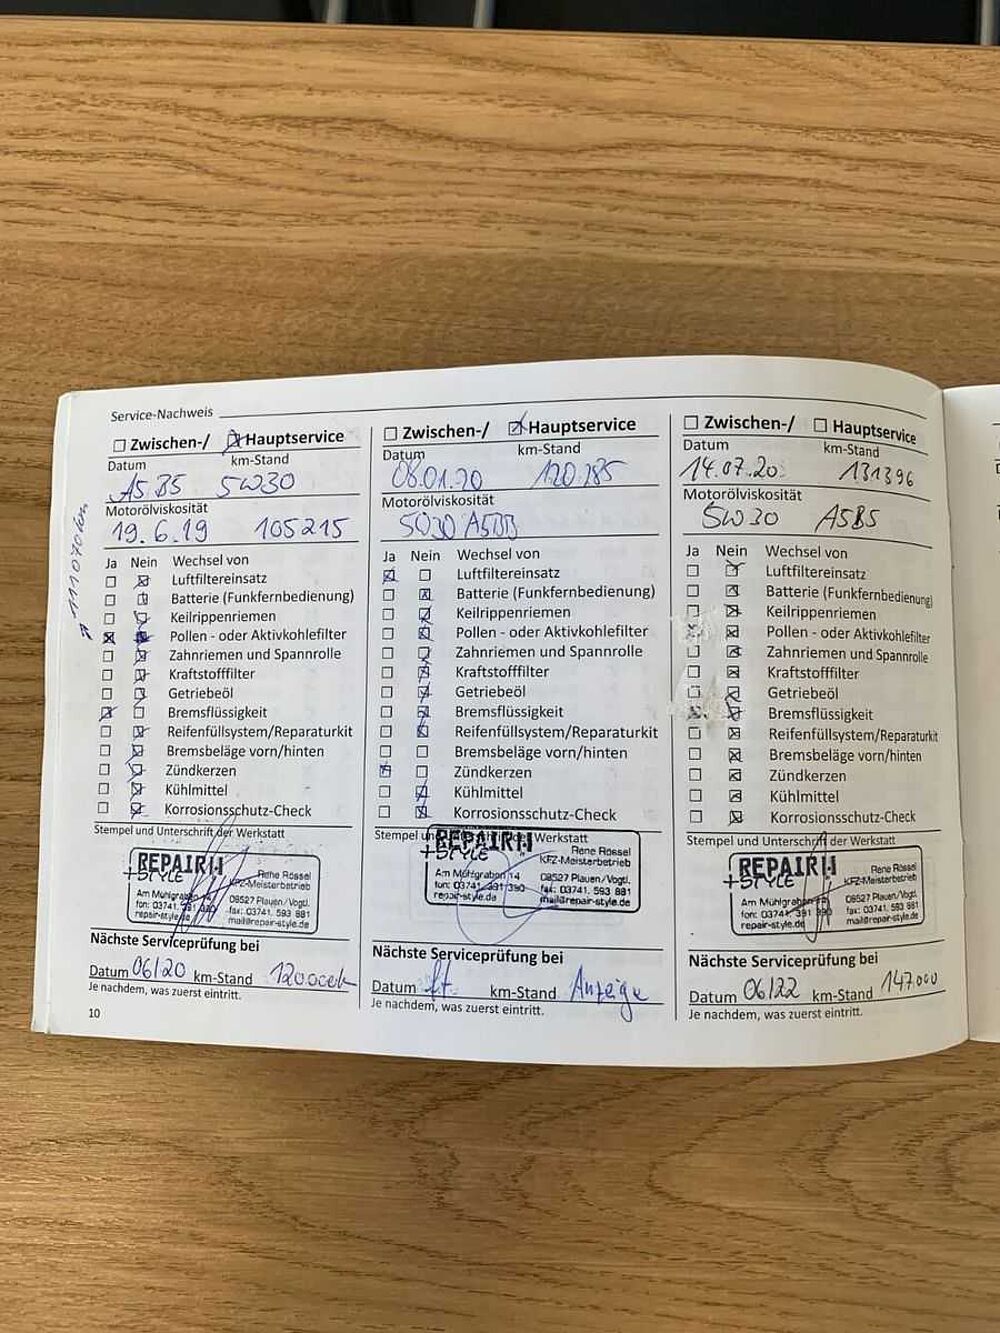 Service-Nachweis
Zwischen-/ Hauptservice
Datum km-Stand
A5 B5 5W30
Motorölviskosität
19.6.19 105215
Ja Nein Wechsel von
Luftfiltereinsatz
Batterie (Funkfernbedienung)
Keilrippenriemen
Pollen - oder Aktivkohlefilter
Zahnriemen und Spannrolle
Kraftstofffilter
Getriebeöl
Bremsflüssigkeit
Reifenfüllsystem/Reparaturkit
Bremsbeläge vorn/hinten
Zündkerzen
Kühlmittel
Korrosionsschutz-Check
Stempel und Unterschrift der Werkstatt
REPAIR
+STYLE
Rene Rössel
KFZ-Meisterbetrieb
Am Mühlgraben 14
08527 Plauen/Vogtl.
fon: 03741. 391 390
fax: 03741. 593 881
repair-style.de
mail@repair-style.de
Nächste Serviceprüfung bei
Datum 06/20 km-Stand
Je nachdem, was zuerst eintritt.
10
Zwischen-/ Hauptservice
Datum km-Stand
08.01.20 120.285
Motorölviskosität
5W30 A5B5
Ja Nein Wechsel von
Luftfiltereinsatz
Batterie (Funkfernbedienung)
Keilrippenriemen
Pollen - oder Aktivkohlefilter
Zahnriemen und Spannrolle
Kraftstofffilter
Getriebeöl
Bremsflüssigkeit
Reifenfüllsystem/Reparaturkit
Bremsbeläge vorn/hinten
Zündkerzen
Kühlmittel
Korrosionsschutz-Check
Stempel und Unterschrift der Werkstatt
REPAIR
+STYLE
Rene Rössel
KFZ-Meisterbetrieb
Am Mühlgraben 14
08527 Plauen/Vogtl.
fon: 03741 391 390
fax: 03741. 593 881
repair-style.de
mail@repair-style.de
Nächste Serviceprüfung bei
Datum lt. km-Stand Anzeige
Je nachdem, was zuerst eintritt.
Zwischen-/ Hauptservice
Datum km-Stand
14.07.20 131396
Motorölviskosität
5W30 A5B5
Ja Nein Wechsel von
Luftfiltereinsatz
Batterie (Funkfernbedienung)
Keilrippenriemen
Pollen - oder Aktivkohlefilter
Zahnriemen und Spannrolle
Kraftstofffilter
Getriebeöl
Bremsflüssigkeit
Reifenfüllsystem/Reparaturkit
Bremsbeläge vorn/hinten
Zündkerzen
Kühlmittel
Korrosionsschutz-Check
Stempel und Unterschrift der Werkstatt
REPAIR
+STYLE
Rene Rössel
KFZ-Meisterbetrieb
Am Mühlgraben 14
08527 Plauen/Vogtl.
fon: 03741 391 390
fax: 03741. 593 881
repair-style.de
mail@repair-style.de
Nächste Serviceprüfung bei
Datum 06/22 km-Stand 147.000
Je nachdem, was zuerst eintritt.